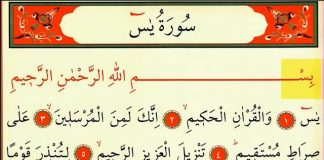 سُورَةُ يٰسٓ
بِسْمِ اللّٰهِ الرَّحْمٰنِ الرَّحِيمِ
يٰسٓ ﴿١﴾ وَالْقُرْاٰنِ الْحَكِيمِ ﴿٢﴾ اِنَّكَ لَمِنَ الْمُرْسَلِينَ ﴿٣﴾ عَلٰى
صِرَاطٍ مُسْتَقِيمٍ ﴿٤﴾ تَنْزِيلَ الْعَزِيزِ الرَّحِيمِ ﴿٥﴾ لِتُنْذِرَ قَوْمًا